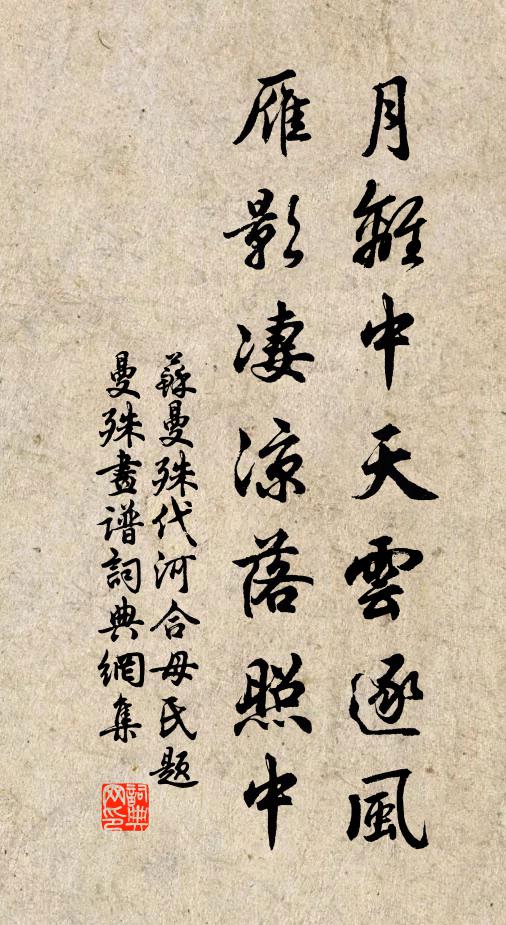 月離中天雲逐風
雁影凄涼落照中
蘇曼殊代河合母氏題
曼殊畫谱詞典網集
詞典网印